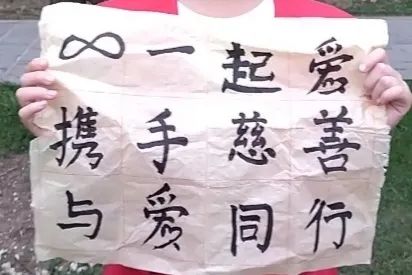 ∞一起爱
携手慈善
与爱同行